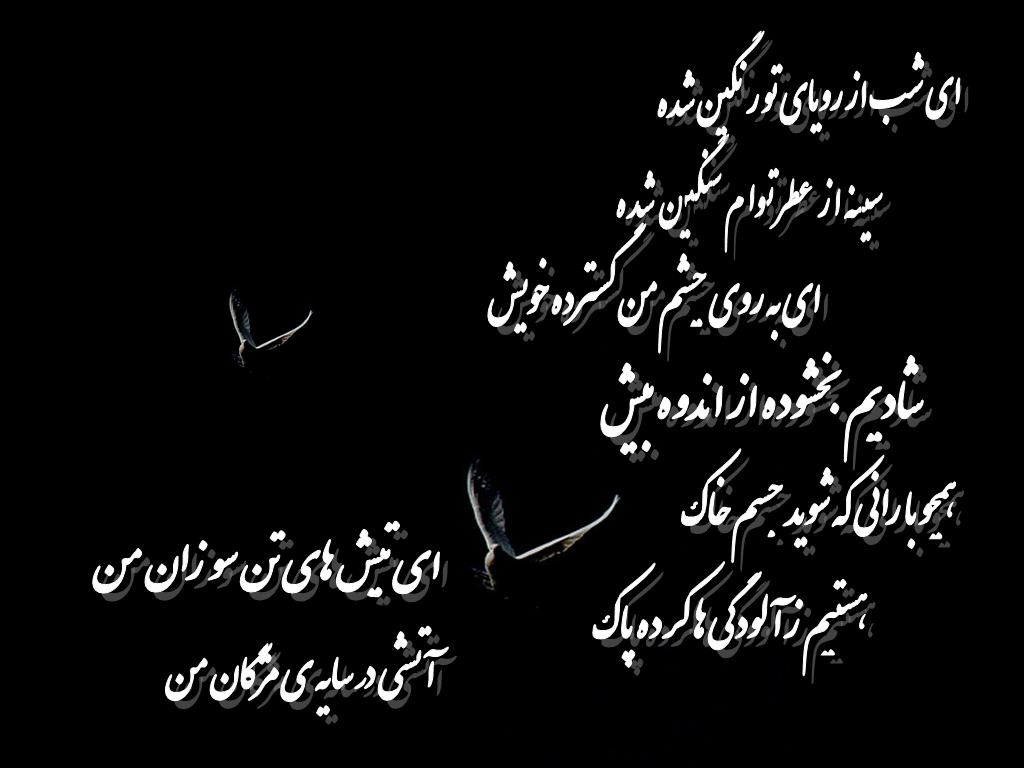 ای شب از رویای تو رنگین شده
سینه از عطر توام سنگین شده
ای به روی چشم من گسترده خویش
شادیم بخشوده از اندوه بیش
همچو بارانی که شوید جسم خاک
هستیم ز آلودگی ها کرده پاک
ای تپش های تن سوزان من
آتشی در سایه ی مژگان من